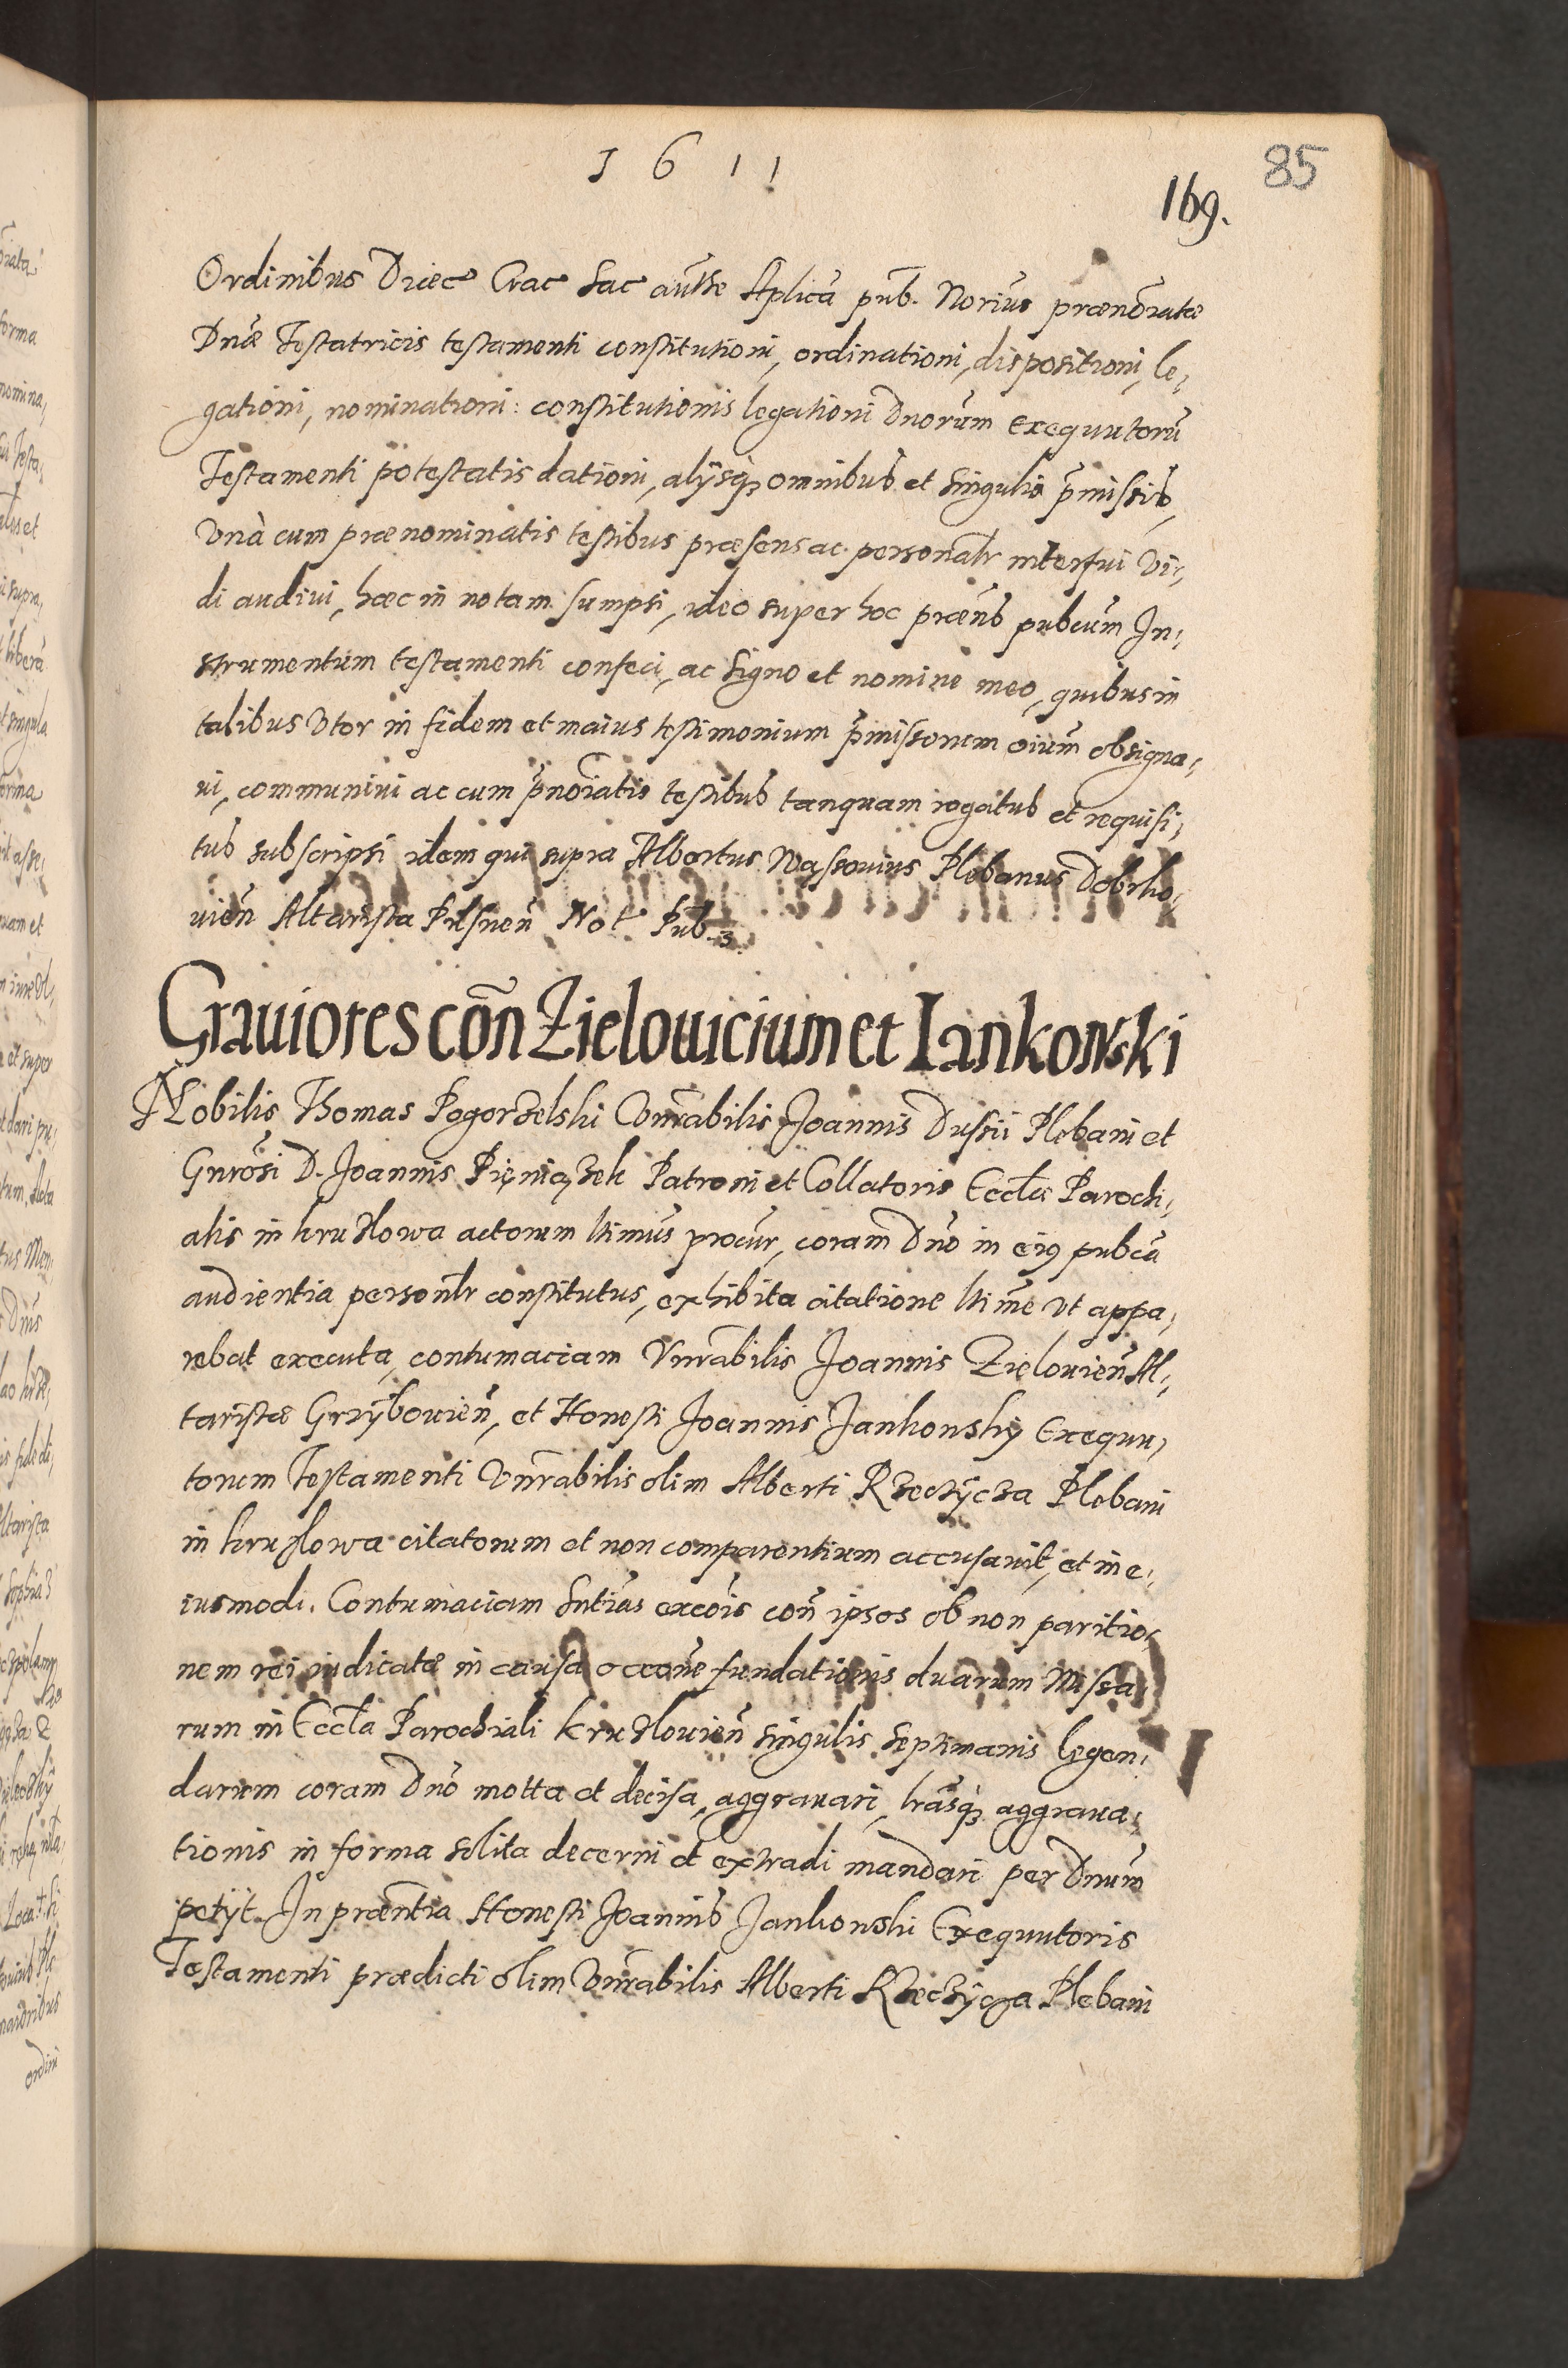 1611
85
169.
Ordinibus Diœc Crac Sac authe Aplica pub. Norius prænoīatæ
Dnæ Testatricis testamenti constitutioni, ordinationi, dispositioni, le,
gationi, nominationi: constitutionis legationi Dnorum exequutorū
Testamenti potestatis dationi, alijsq; omnibus et singulis p̄missis,
Vnà cum prænominatis testibus præsens ac personalr interfui vi,
di audiui, hæc in notam sumpsi, ideo super hoc præns pubcum In,
strumentum testamenti confeci, ac signo et nomine meo, quibus in
talibus vtor in fidem et maius testimonium p̄missorum oīum obsigna,
ui, communiui ac cum p̄noīatis testibus tanquam rogatus et requisi,
tus subscripsi idem qui supra Albertus Wassouius Plebanus Dobrko,
uien̄ Altarista Pilsnen̄ Not Pub.
Grauiores con̄ Zielouicium et Iankowski
Nobilis Thomas Pogorzelski Vnrabilis Joannis Dussii Plebani et
Gnrosi D. Joannis Pięniązek Patroni et Collatoris Eccłæ Parochi,
alis in Kruzlowa actorum ltimus procur, coram Dno in eiq pubca
audientia personlr constitutus, exhibita citatione ltime vt appa,
rebat executa, contumaciam Vnrabilis Joannis Zielouien̄ Al,
taristæ Grzÿbouien̄, et Honesti Joannis Jankowsky Exequu,
torum Testamenti Vnrabilis olim Alberti Rzeczÿcza Plebani
in Kruzlowa citatorum et non comparentium accusauit, et in e,
iusmodi. Contumaciam sntias excoīs con̄ ipsos ob non paritio,
nem rei iudicatæ in causa occone fundationis duarum Missa,
rum in Eccła Parochiali Kruzlouien̄ singulis septimanis legen,
darum coram Dno motta et decisa, aggrauari, lrasq; aggraua,
tionis in forma solita decerni et extradi mandari per Dnum
petÿt. In præntia Honesti Joannis Jankowski Exequutoris
Testamenti prædicti olim Vnrabilis Alberti Rzeczÿcza Plebani